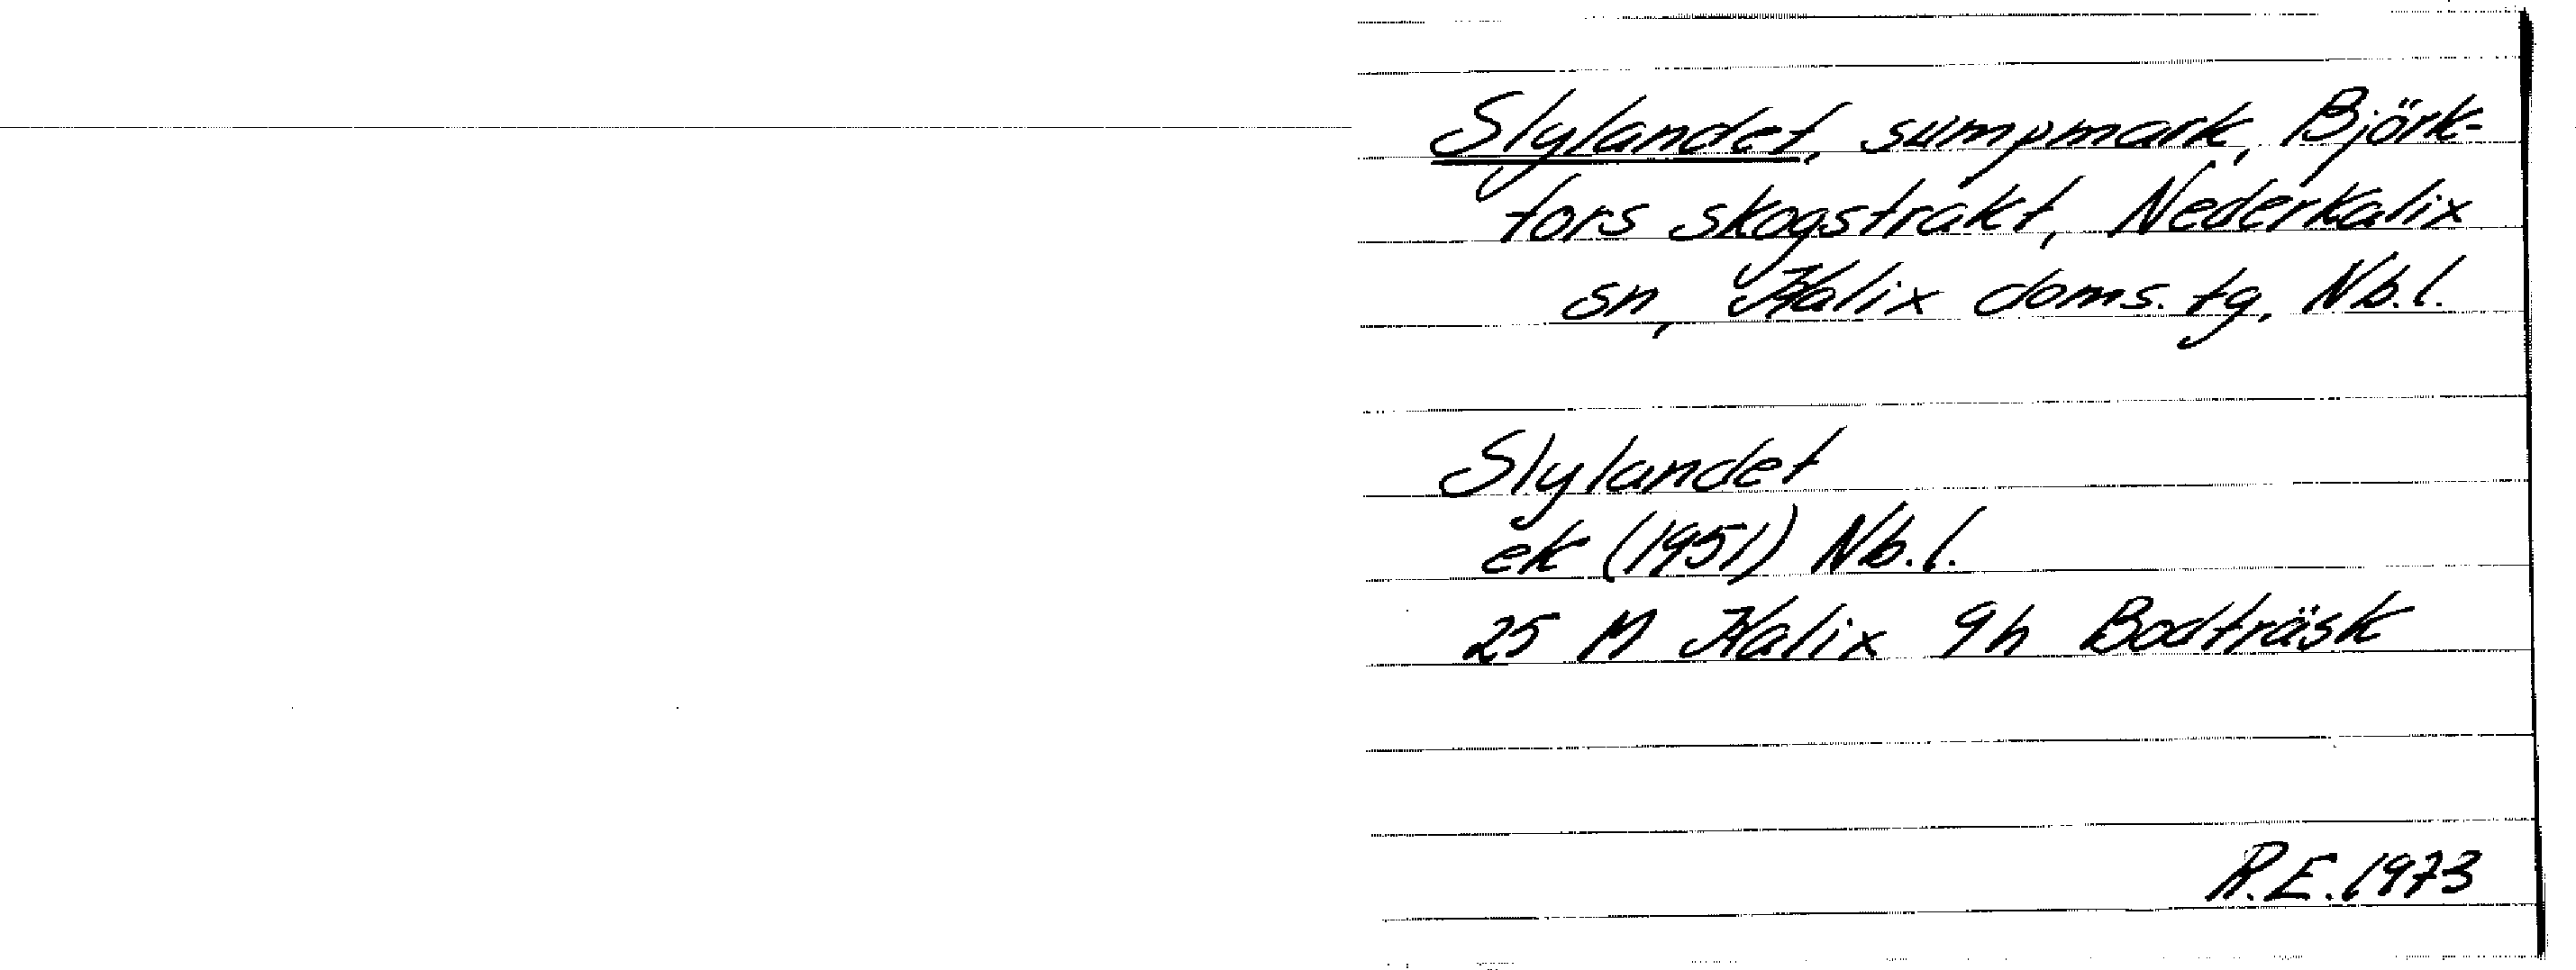 Slylandet, sumpmark, Björk-
fors skogstrakt, Nederkalix
sn, Kalix doms. tg, Nb.l.
Slylandet
ek (1951) Nb.l.
25 M Kalix 9h Bodträsk
R.E. 1973